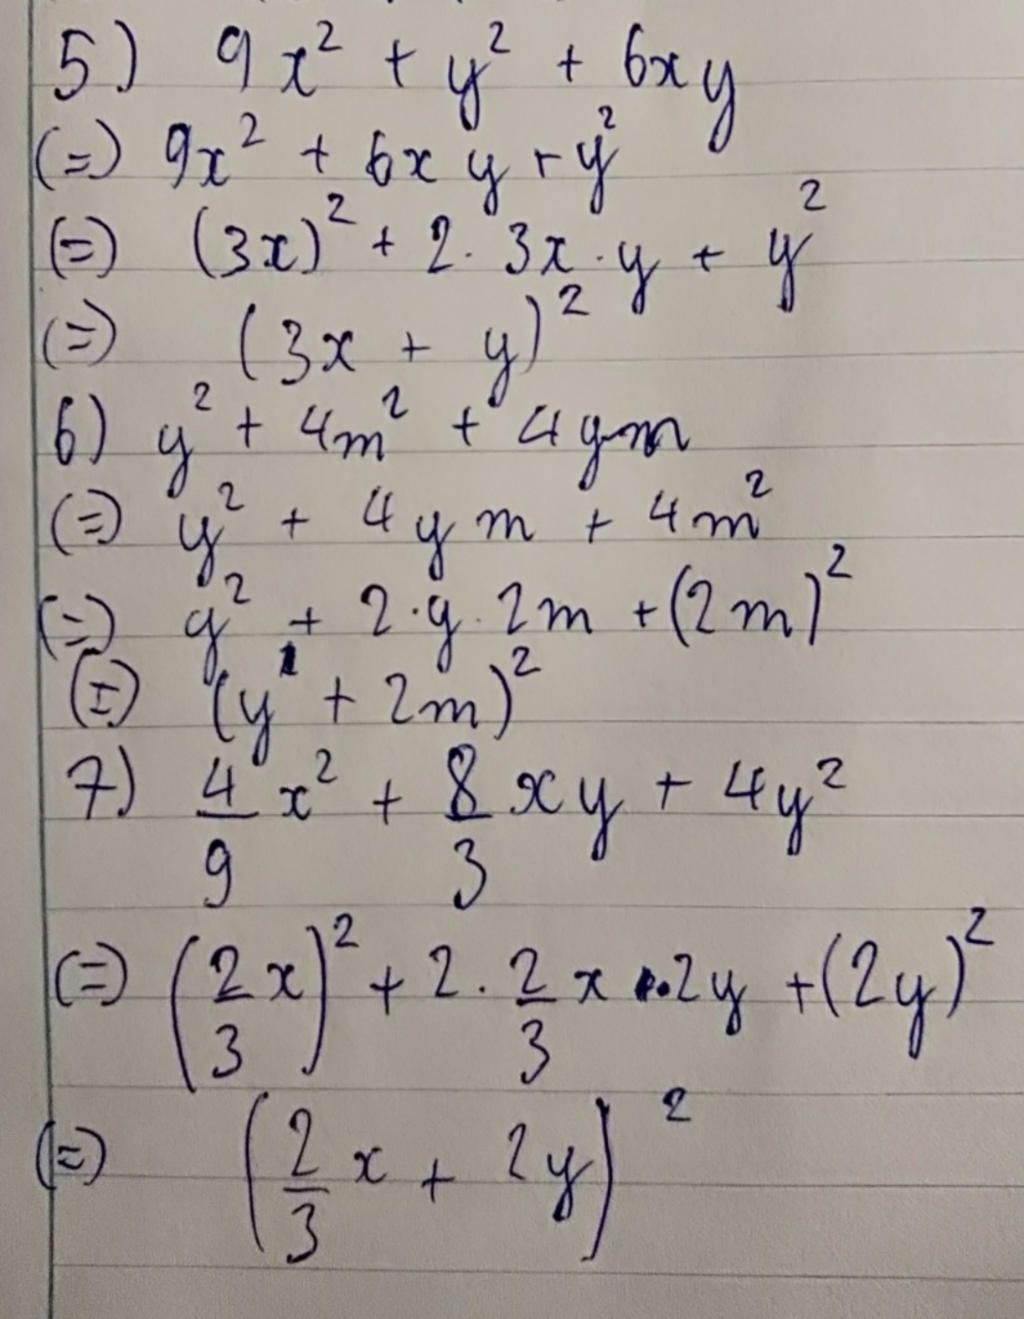 5) 9x² + y² + 6xy
(=) 9x² + 6xy + y²
(=) (3x)² + 2. 3x . y + y²
(=) (3x + y)²
6) y² + 4m² + 4ym
(=) y² + 4ym + 4m²
(=) y² + 2.y.2m + (2m)²
(=) (y + 2m)²
7) 4/9 x² + 8/3 xy + 4y²
(=) (2/3 x)² + 2. 2/3 x . 2y + (2y)²
(=) (2/3 x + 2y)²